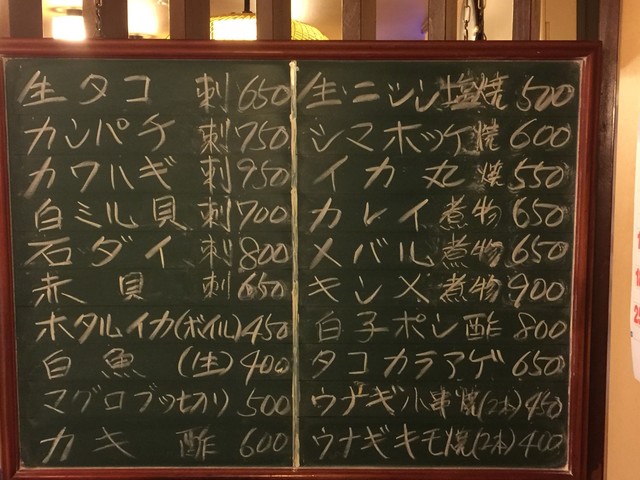 生タコ 刺 650
カンパチ 刺 750
カワハギ 刺 950
白ミル貝 刺 700
石ダイ 刺 800
赤貝 刺 650
ホタルイカ(ボイル) 450
白魚 (生) 400
マグロブッセオリ 500
カキ 酢 600
生ニシン塩焼 500
シマホッケ焼 600
イカ丸焼 550
カレイ煮物 650
メバル煮物 650
キンメ煮物 900
白子ポン酢 800
タコカラアゲ 650
ウナギ小串焼(2本) 450
ウナギキモ焼(2本) 400